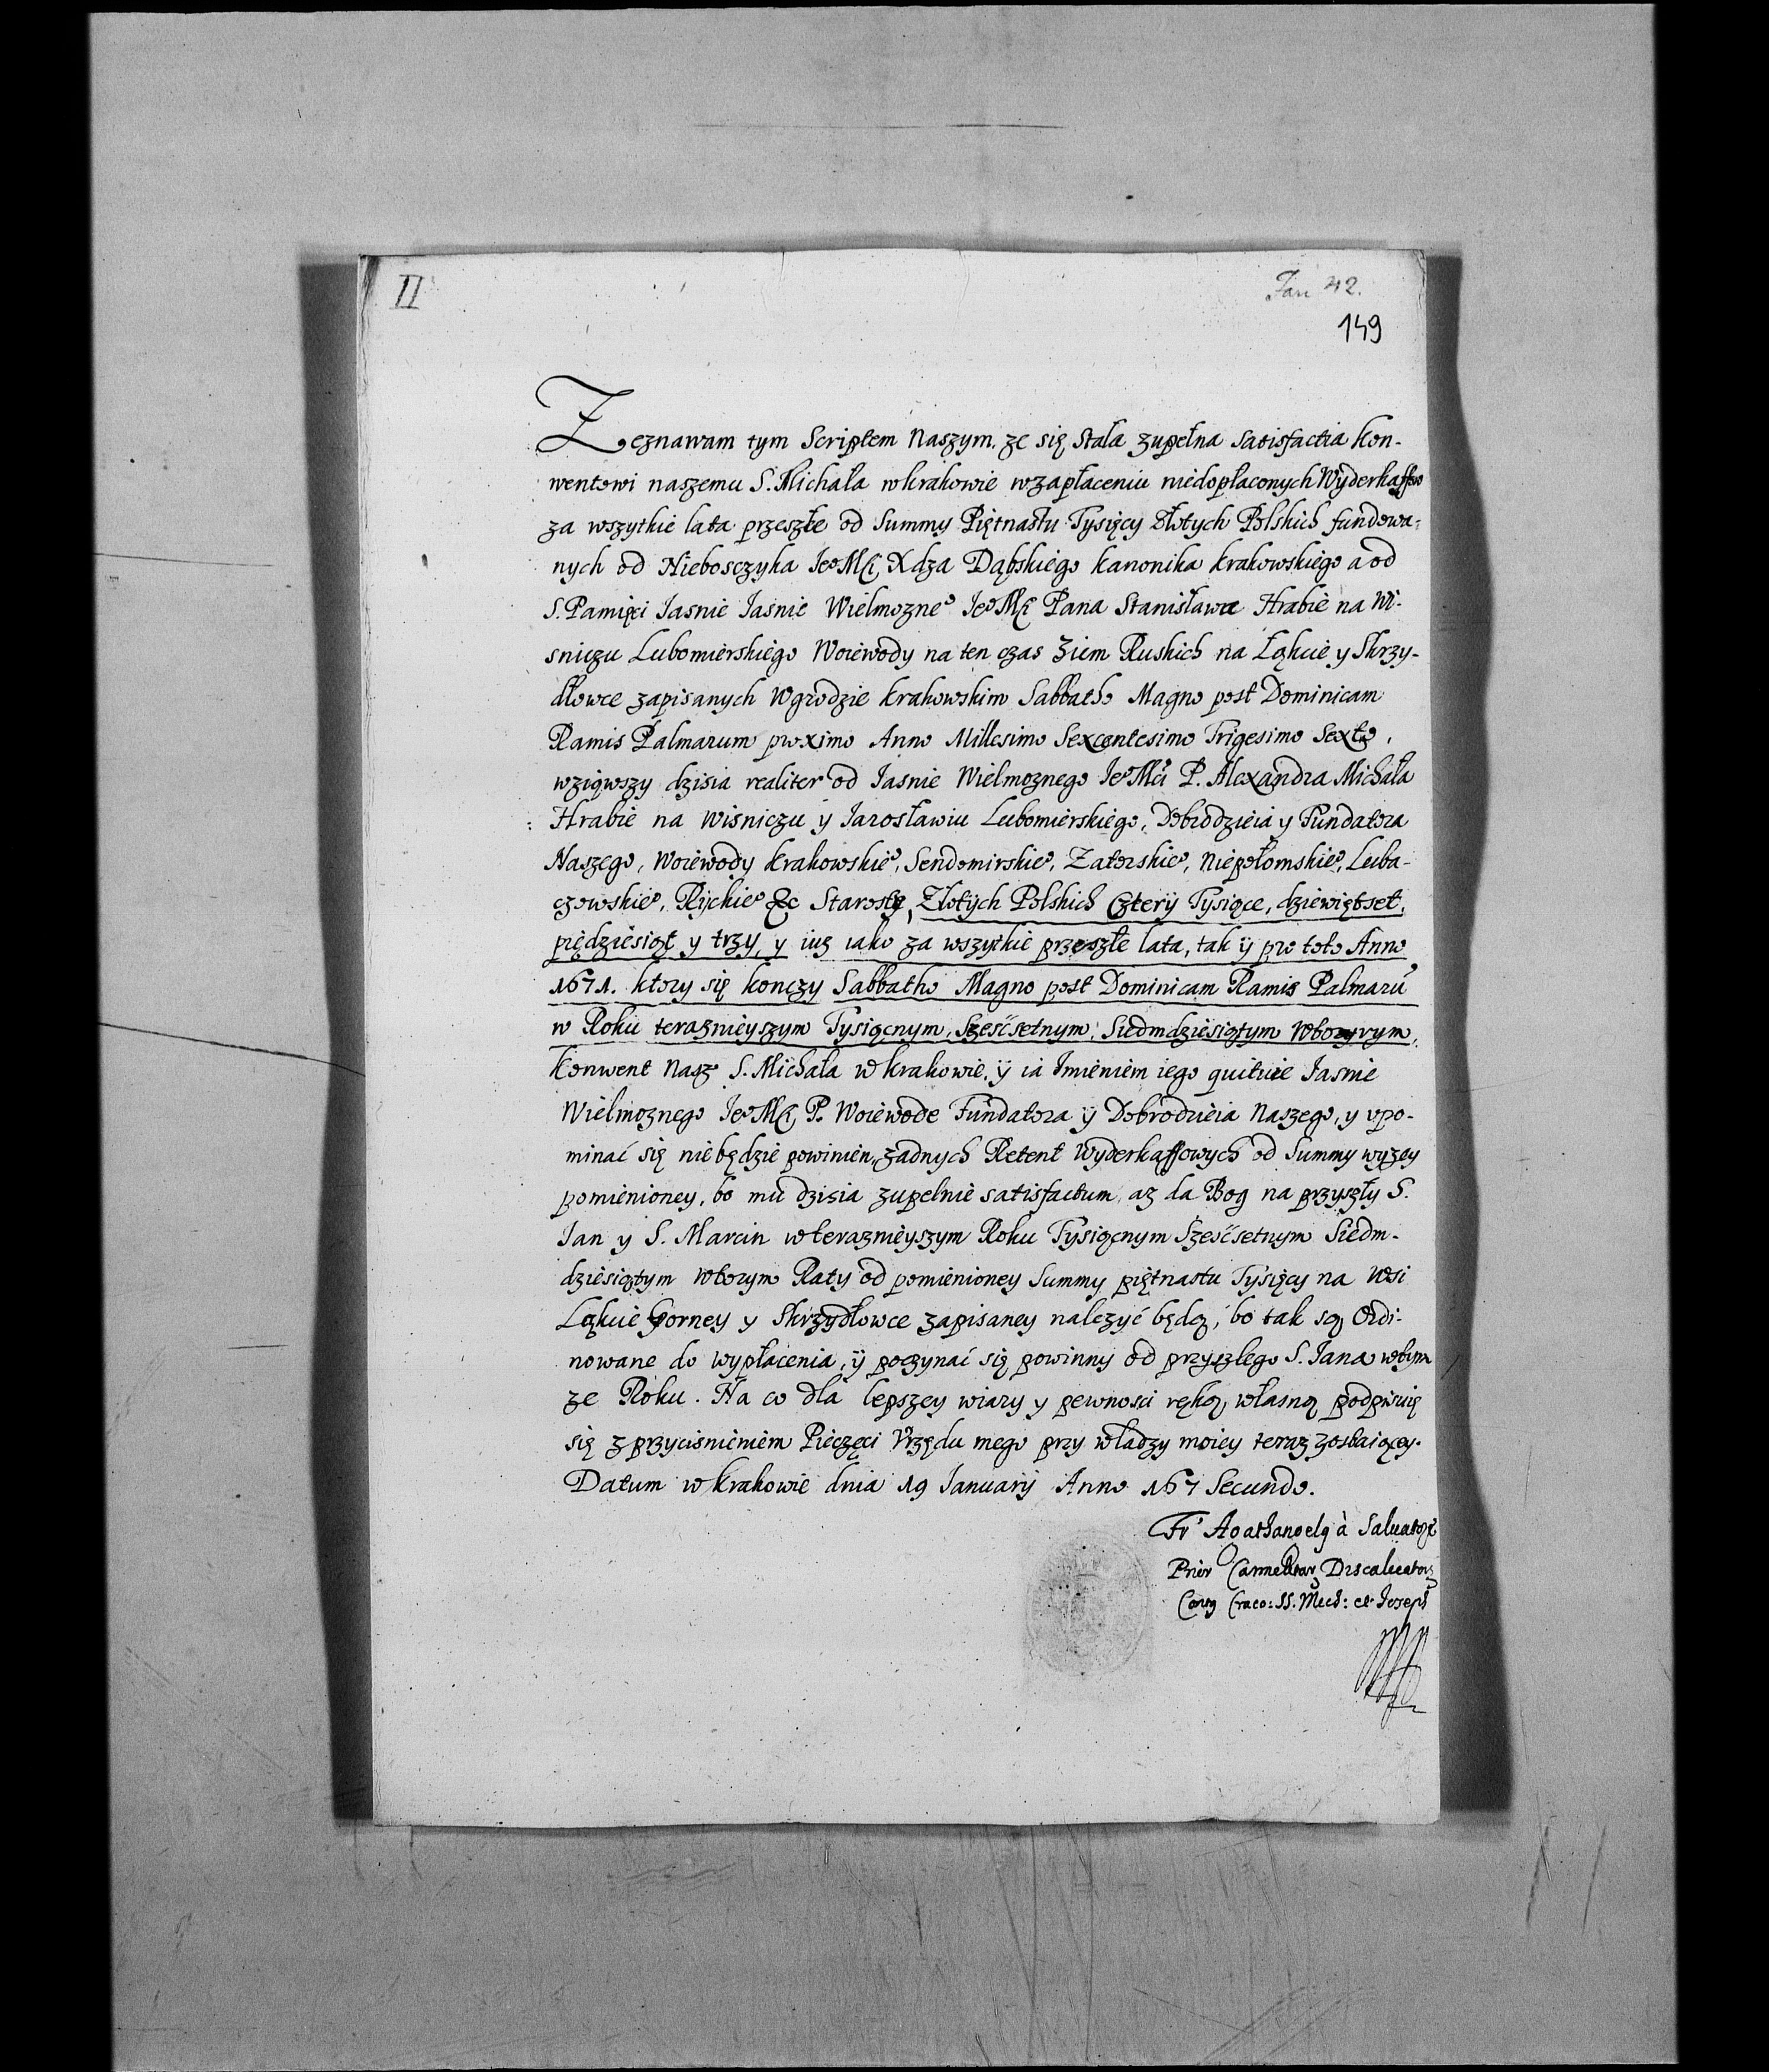 II
Fan 42.
149
Zeznawam tym Scriptem Naszym. ze się Stała zupełna Satisfactia Kon-
wentowi naszemu S. Michała w Krakowie w zapłaceniu niedopłaconych Wyderkaffow
za wszytkie lata przeszłe od Summy Piętnastu Tysięcy Złotych Polskich fundowa-
nych od Nieboszczyka Ieo Mći Xdza Dąbskiego Kanonika Krakowskiego a od
S. Pamięci Iasnie Iasnie Wielmozneo Ieo Mći Pana Stanisława Hrabie na Wi-
sniczu Lubomierskiego Woiewody na ten czas Ziem Ruskich na Łąkcie y Skrzy-
dłowce zapisanych W grodzie Krakowskim Sabbatho Magno post Dominicam
Ramis Palmarum proximo Anno Millesimo Sexcentesimo Trigesimo Sexto,
wziąwszy dzisia realiter od Iasnie Wielmoznego Ieo Mći P. Alexandra Michała
Hrabie na Wisniczu y Iarosławiu Lubomierskiego, Dobrodzieia y Fundatora
Naszego, Woiewody Krakowskieo, Sendomirskieo, Zatorskieo, Niepołomskieo, Luba-
czowskieo, Ryckieo &c Starosty, Złotych Polskich Cztery Tysiące, dziewiętset,
piędziesiąt y trzy, y iuz iako za wszytkie przeszłe lata, tak ÿ pro toto Anno
1671. ktory się konczy Sabbatho Magno post Dominicam Ramis Palmarū
w Roku teraznieyszym Tysiącnym, Sześćsetnym, Siedmdziesiątym Wtorym,
Konwent Nasz S. Michała w Krakowie, ÿ ia Imieniem iego quituie Iasnie
Wielmoznego Ieo Mći P. Woiewode Fundatora ÿ Dobrodzieia Naszego, y vpo-
minać się niebędzie powinien, zadnych Retent Wyderkaffowych od Summy wyzey
pomienioney, bo mu dzisia zupełnie satisfactum, az da Bog na przyszły S.
Ian y S. Marcin w teraznieyszym Roku Tysiącnym Sześćsetnym Siedm-
dziesiątym Wtorym Raty od pomienioney Summy piętnastu Tysięcy na Wsi
Łąkcie Gorney y Skrzydłowce zapisaney nalezyć będą, bo tak są Ordi-
nowane do wypłacenia, ÿ poczynać się powinny od przyszłego S. Iana w tym
ze Roku. Na co dla lepszey wiary y pewnosci ręką własną podpisuię
się z przycisnieniem Pieczęci Vrzędu mego przy władzy moiey teraz zostaiącey.
Datum w Krakowie dnia 19 Ianuarij Anno 167 Secundo.
Fr Agathangelg à Saluatore
Prior Carmelitar Discalceator
Conv Craco: SS. Mich: et Ioseph